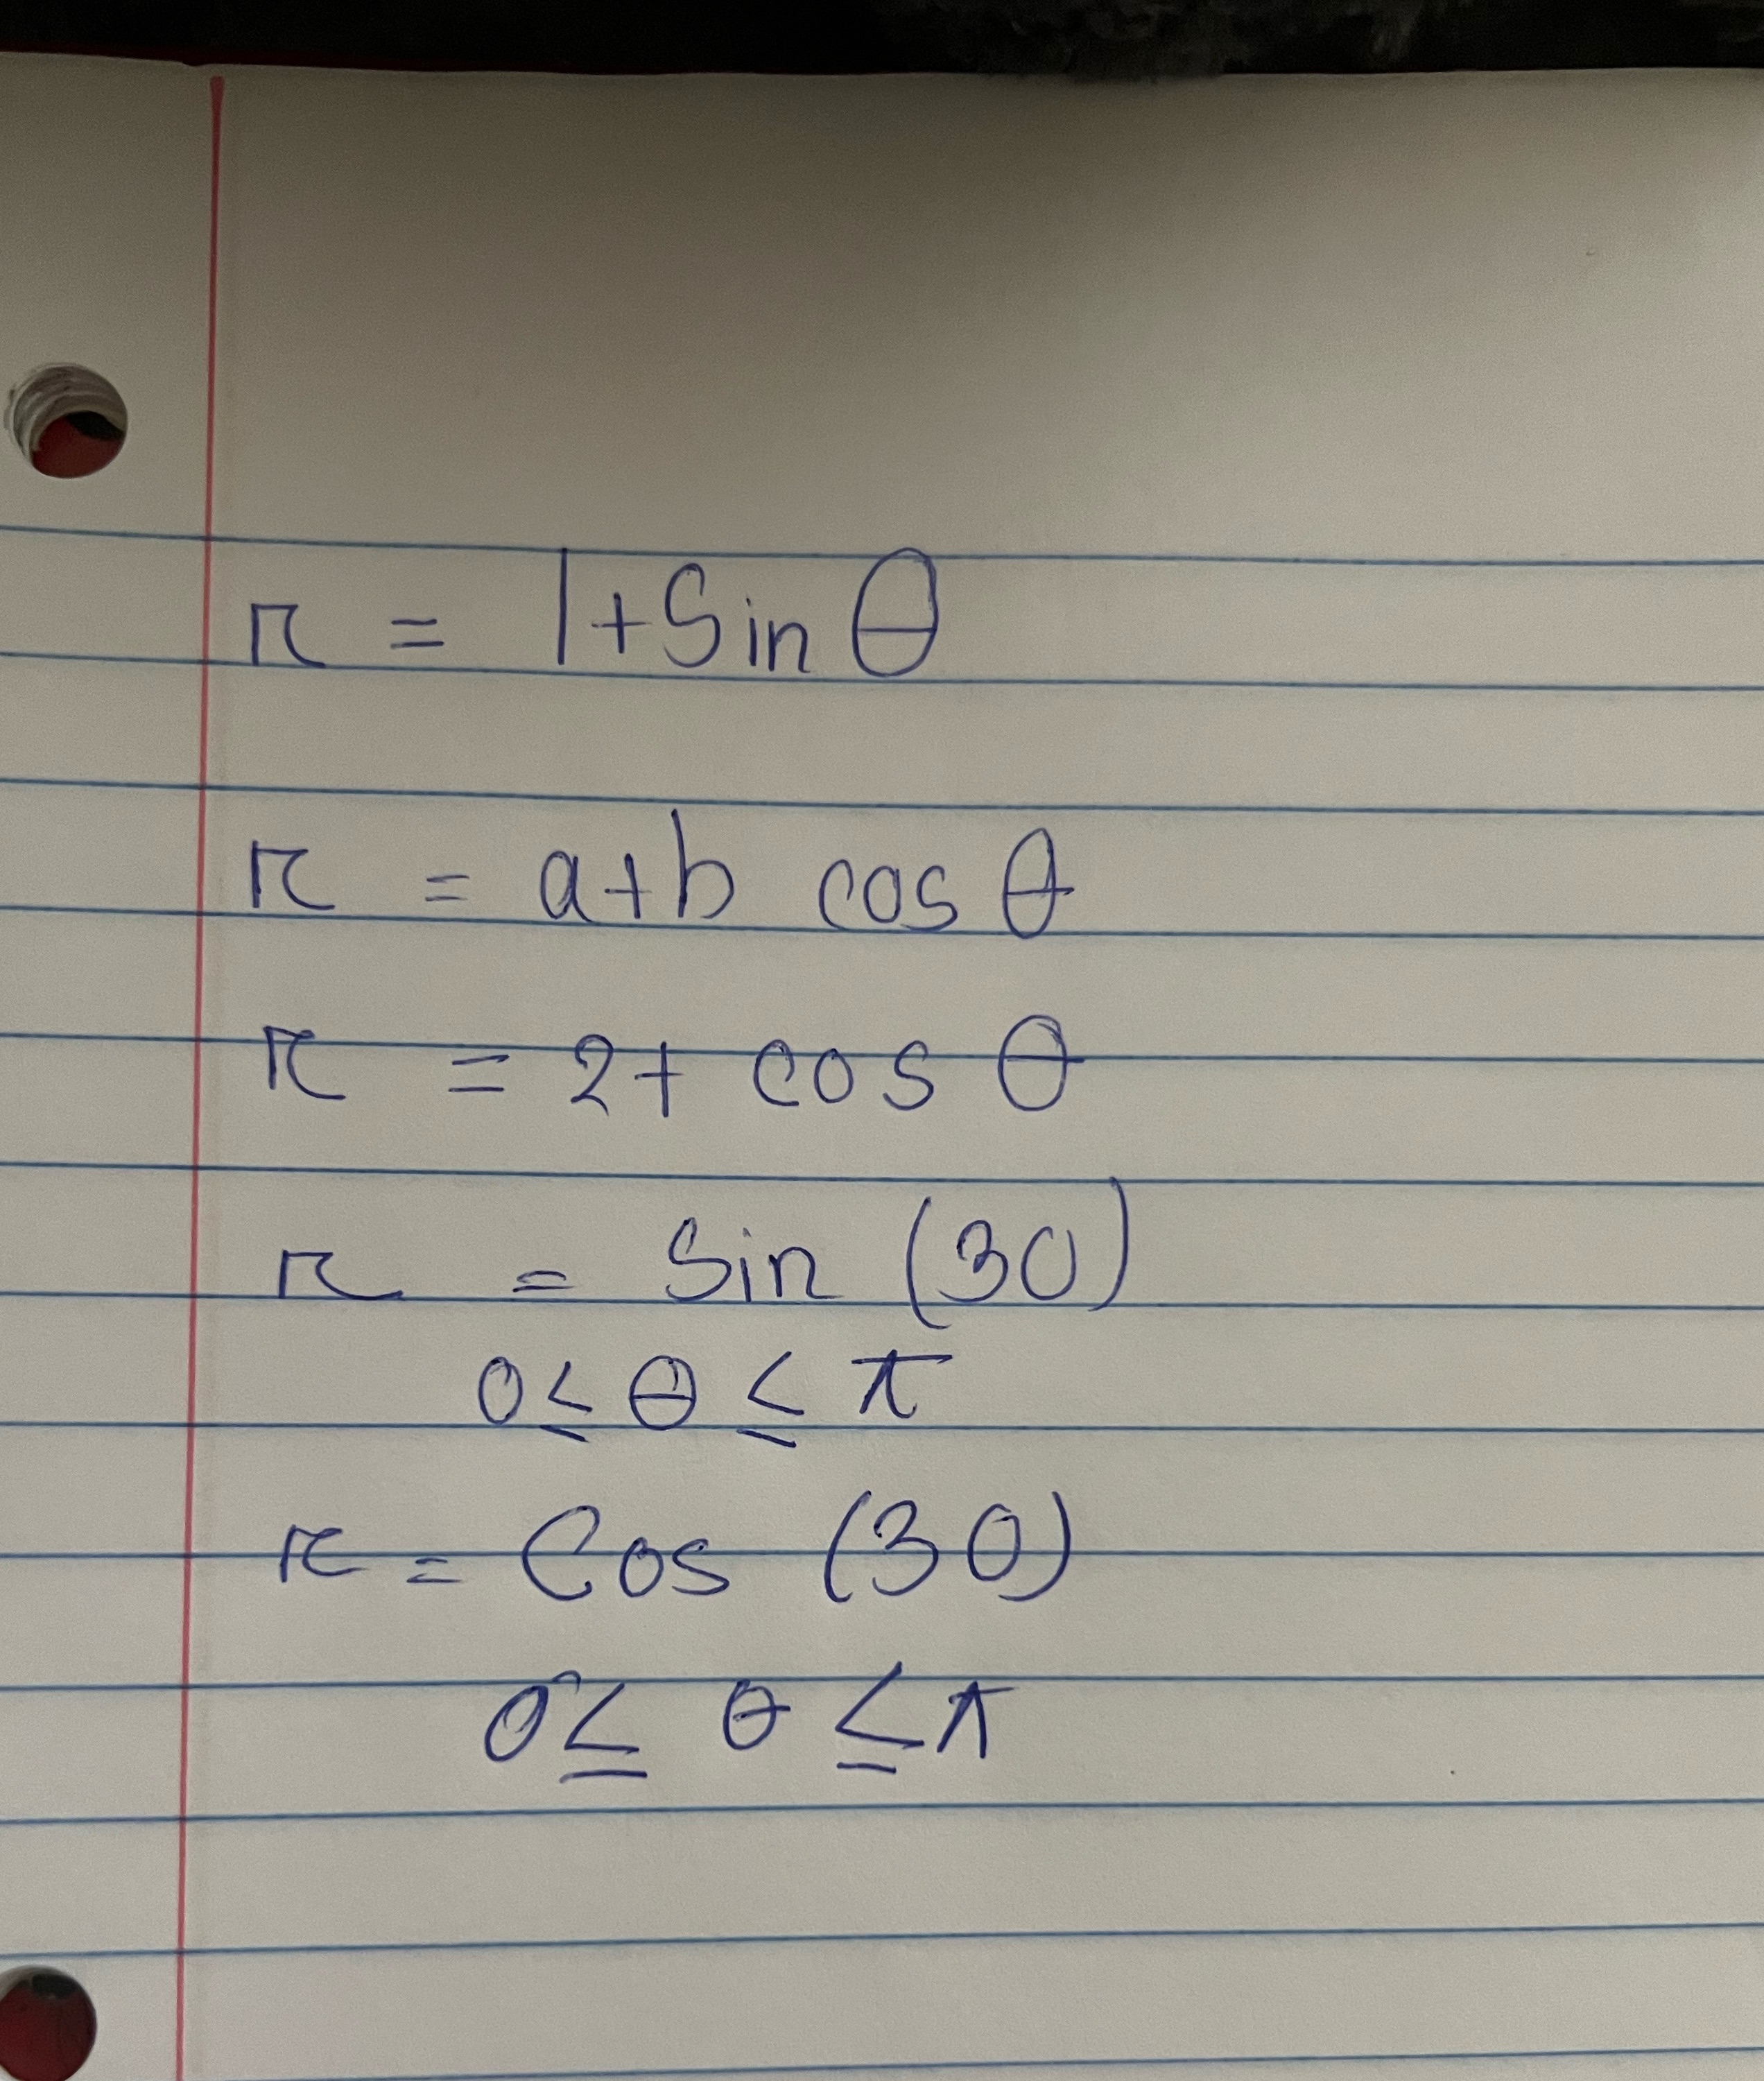 r = 1+Sin θ
r = a+b cos θ
r = 2+ cos θ
r = Sin (30)
0 ≤ θ ≤ π
r = Cos (30)
0 ≤ θ ≤ π